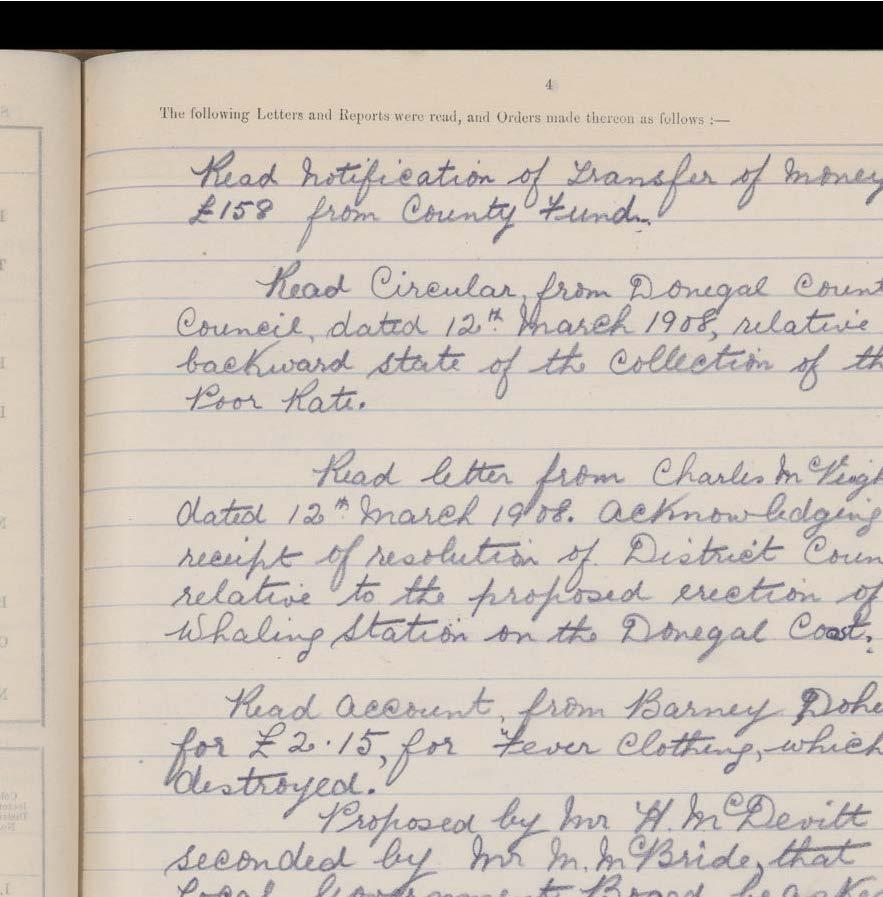 4
The following Letters and Reports were read, and Orders made thereon as follows :—
Read Notification of Transfer of Money
£158 from County Fund.
Read Circular, from Donegal Count
Council, dated 12th March 1908, relative
backward state of the collection of th
Poor Rate.
Read letter from Charles McVeigh
dated 12th March 1908. acknowledging
receipt of resolution of District Coun
relative to the proposed erection of
Whaling Station on the Donegal Coast.
Read account, from Barney Dohe
for £2.15, for Fever Clothing, which
destroyed.
Proposed by Mr H. McDevitt
seconded by Mr M. McBride, that
Local Government Board be asked